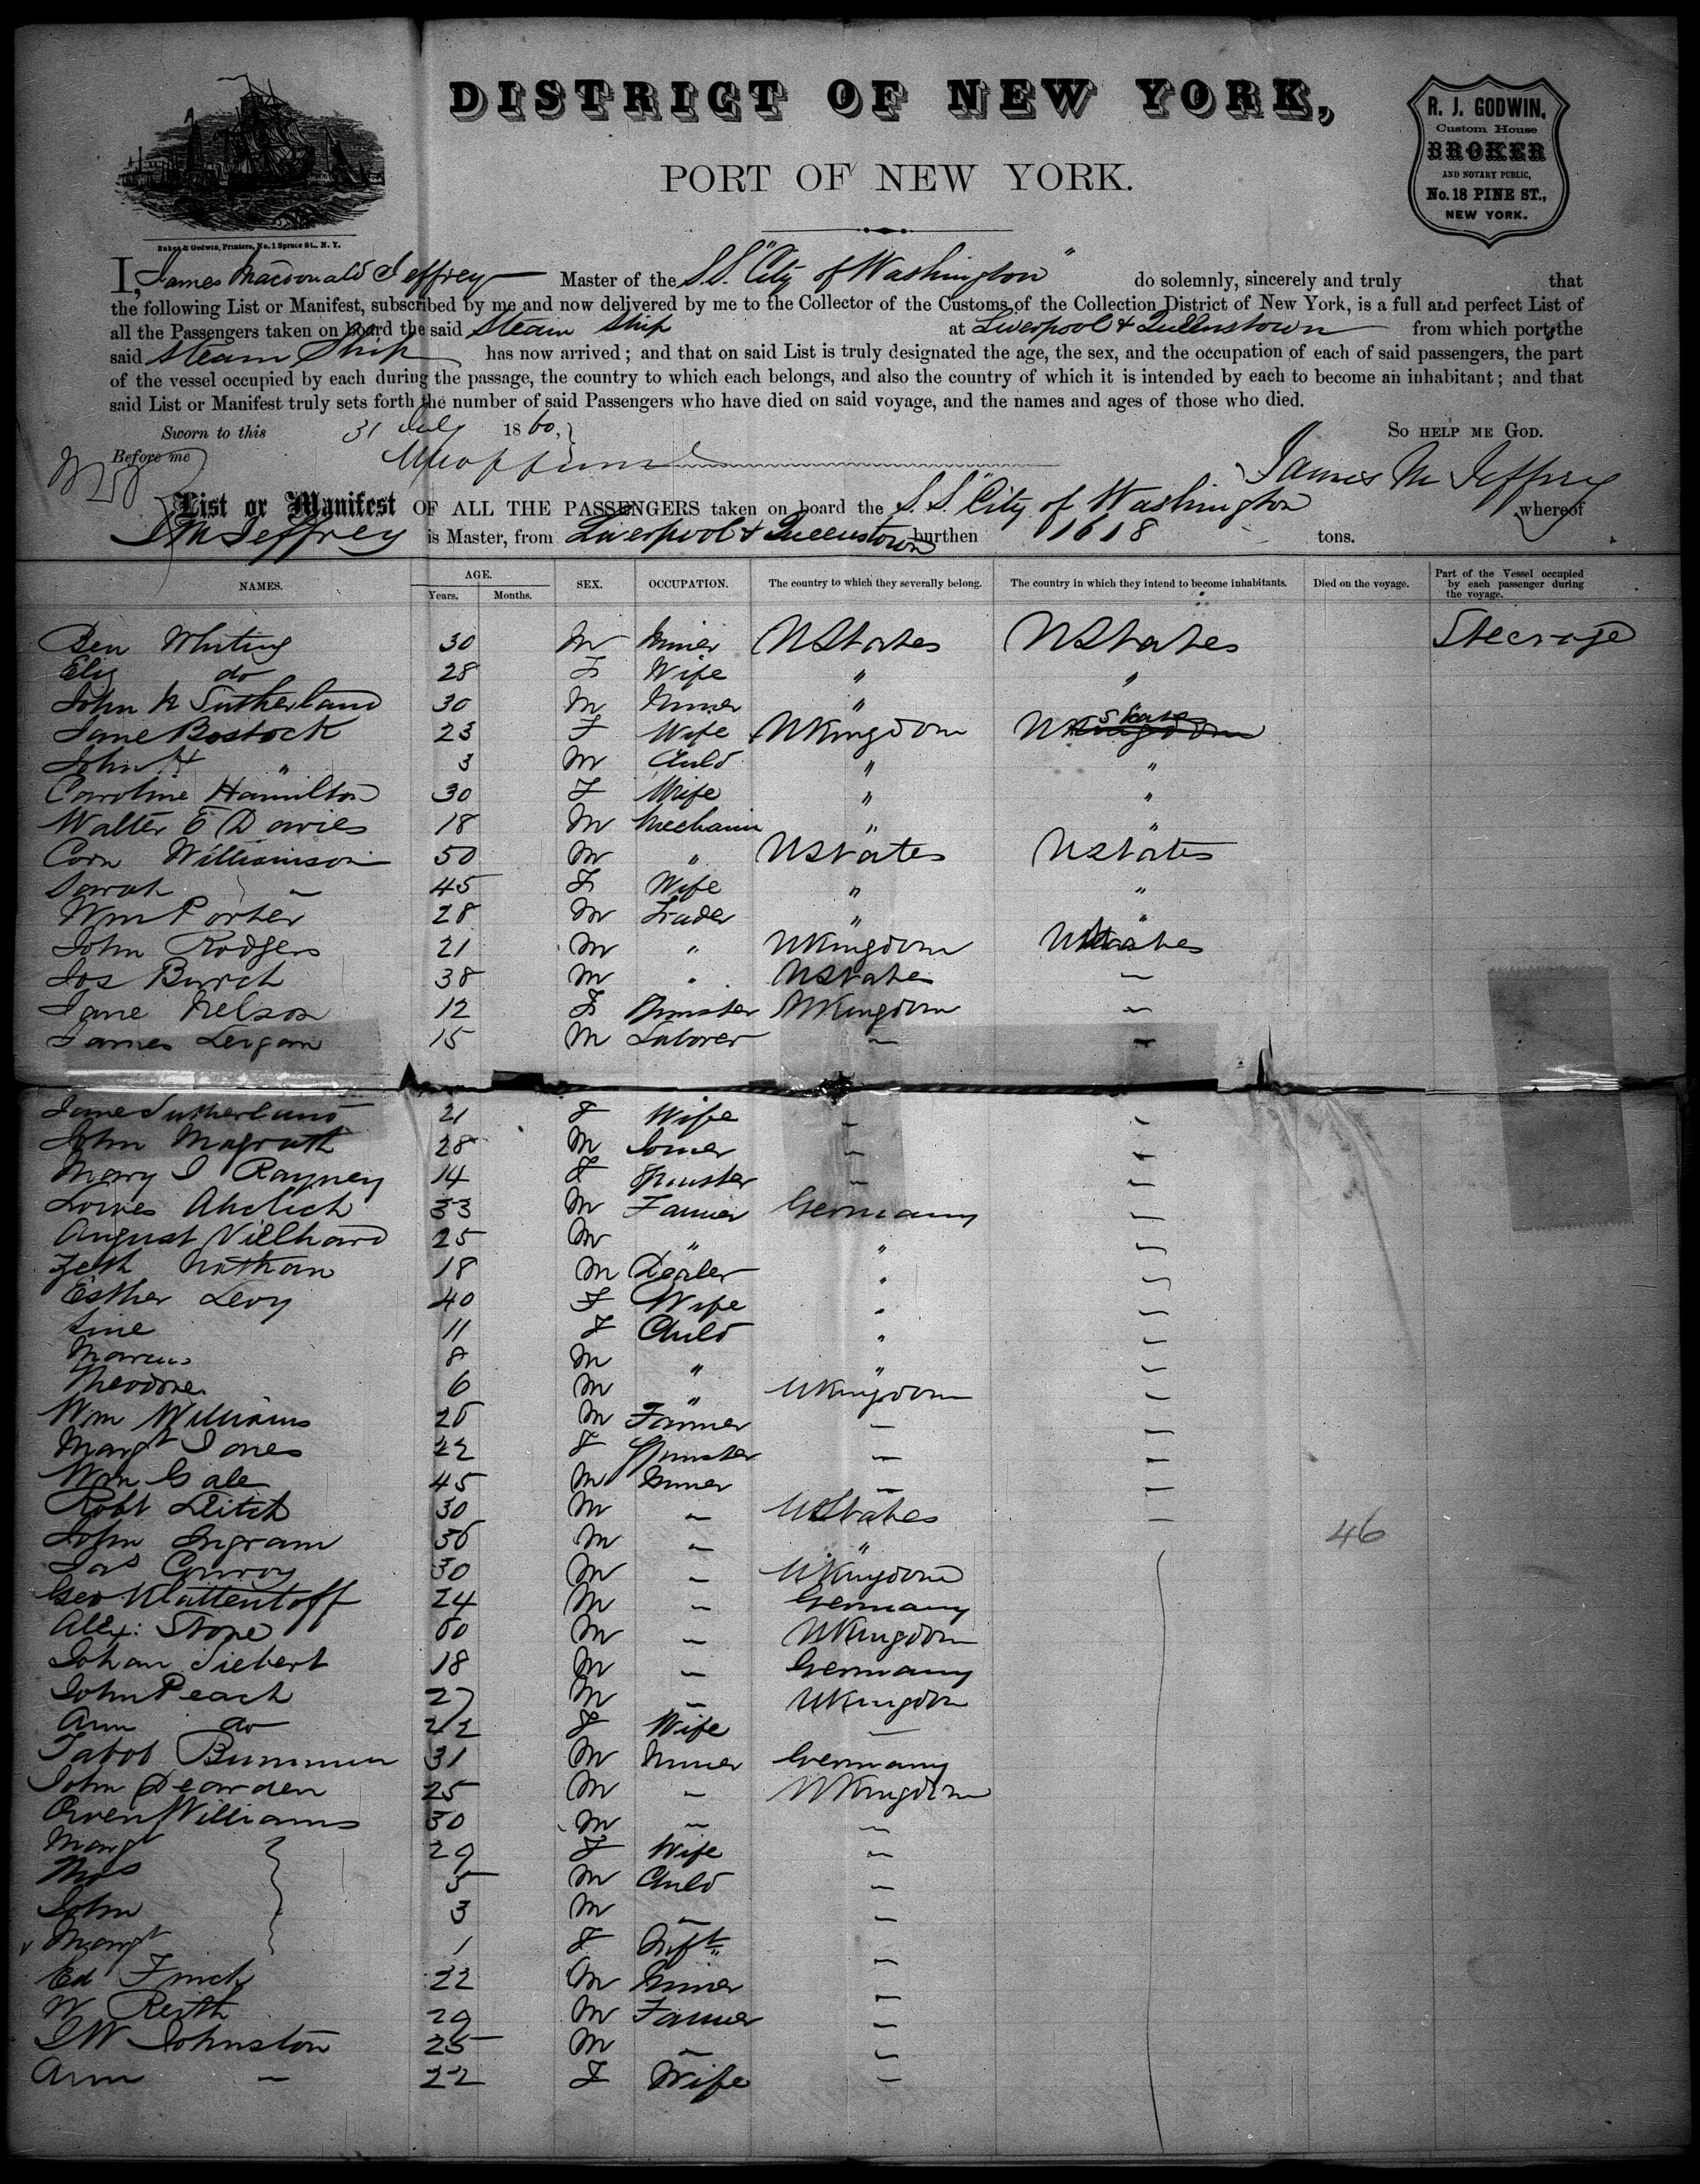 DISTRICT OF NEW YORK,
PORT OF NEW YORK.
Baker & Godwin, Printers, No. 1 Spruce St., N. Y.
R. J. GODWIN,
Custom House
BROKER
AND NOTARY PUBLIC,
No. 18 PINE ST.,
NEW YORK.
I, James Macdonald Jeffrey Master of the S.S. "City of Washington" do solemnly, sincerely and truly that
the following List or Manifest, subscribed by me and now delivered by me to the Collector of the Customs of the Collection District of New York, is a full and perfect List of
all the Passengers taken on board the said Steam Ship at Liverpool & Queenstown from which ports the
said Steam Ship has now arrived; and that on said List is truly designated the age, the sex, and the occupation of each of said passengers, the part
of the vessel occupied by each during the passage, the country to which each belongs, and also the country of which it is intended by each to become an inhabitant; and that
said List or Manifest truly sets forth the number of said Passengers who have died on said voyage, and the names and ages of those who died.
Sworn to this 31 July 1860, } SO HELP ME GOD.
Before me
James M Jeffrey
List or Manifest OF ALL THE PASSENGERS taken on board the S.S. "City of Washington whereof
J M Jeffrey is Master, from Liverpool & Queenstown burthen 1618 tons.
NAMES. AGE. Years. Months. SEX. OCCUPATION. The country to which they severally belong. The country in which they intend to become inhabitants. Died on the voyage. Part of the Vessel occupied by each passenger during the voyage.
Ben Whiting 30 M Miner UStates UStates Steerage
Eliz do 28 F Wife " "
John N Sutherland 30 M Miner "
Jane Bostock 23 F Wife UKingdom U States
John H " 3 M Child " "
Caroline Hamilton 30 F Wife " "
Walter E Davies 18 M Mechanic " "
Corn Williamson 50 M " UStates UStates
Sarah " 45 F Wife " "
Wm Porter 28 M Trader " "
John Rodgers 21 M " UKingdom UStates
Jos Burch 38 M " UState "
Jane Nelson 12 F Spinster UKingdom "
James 15 M Laborer " "
Jane Sutherland 21 F Wife " "
John Magrath 28 M " "
Mary J Rayney 14 F Spinster " "
33 M Farmer Germany "
August Villhard 25 M " " "
Nathan 18 M Dealer " "
Esther Levy 40 F Wife " "
Line 11 F Child " "
Marcus 8 M " " "
Theodore 6 M " UKingdom "
Wm Williams 26 M Farmer " "
Margt Jones 22 F Spinster " "
Wm Gale 45 M Miner " "
Robt Leitch 30 M " UStates "
John Ingram 36 M " " 46
Jas Conroy 30 M " UKingdom
Geo Klattenhoff 24 M " Germany
Alex: Stone 60 M " UKingdom
Johan Siebert 18 M " Germany
John Peach 27 M " UKingdom
Ann do 22 F Wife "
31 M Miner Germany
John Dearden 25 M " UKingdom
Owen Williams 30 M " "
Margt 29 F Wife "
Thos 5 M Child "
John 3 M " "
Margt 1 F Inft "
Ed Finch 22 M Miner "
W Reith 29 M Farmer "
J W Johnston 25 M " "
Ann " 22 F Wife "